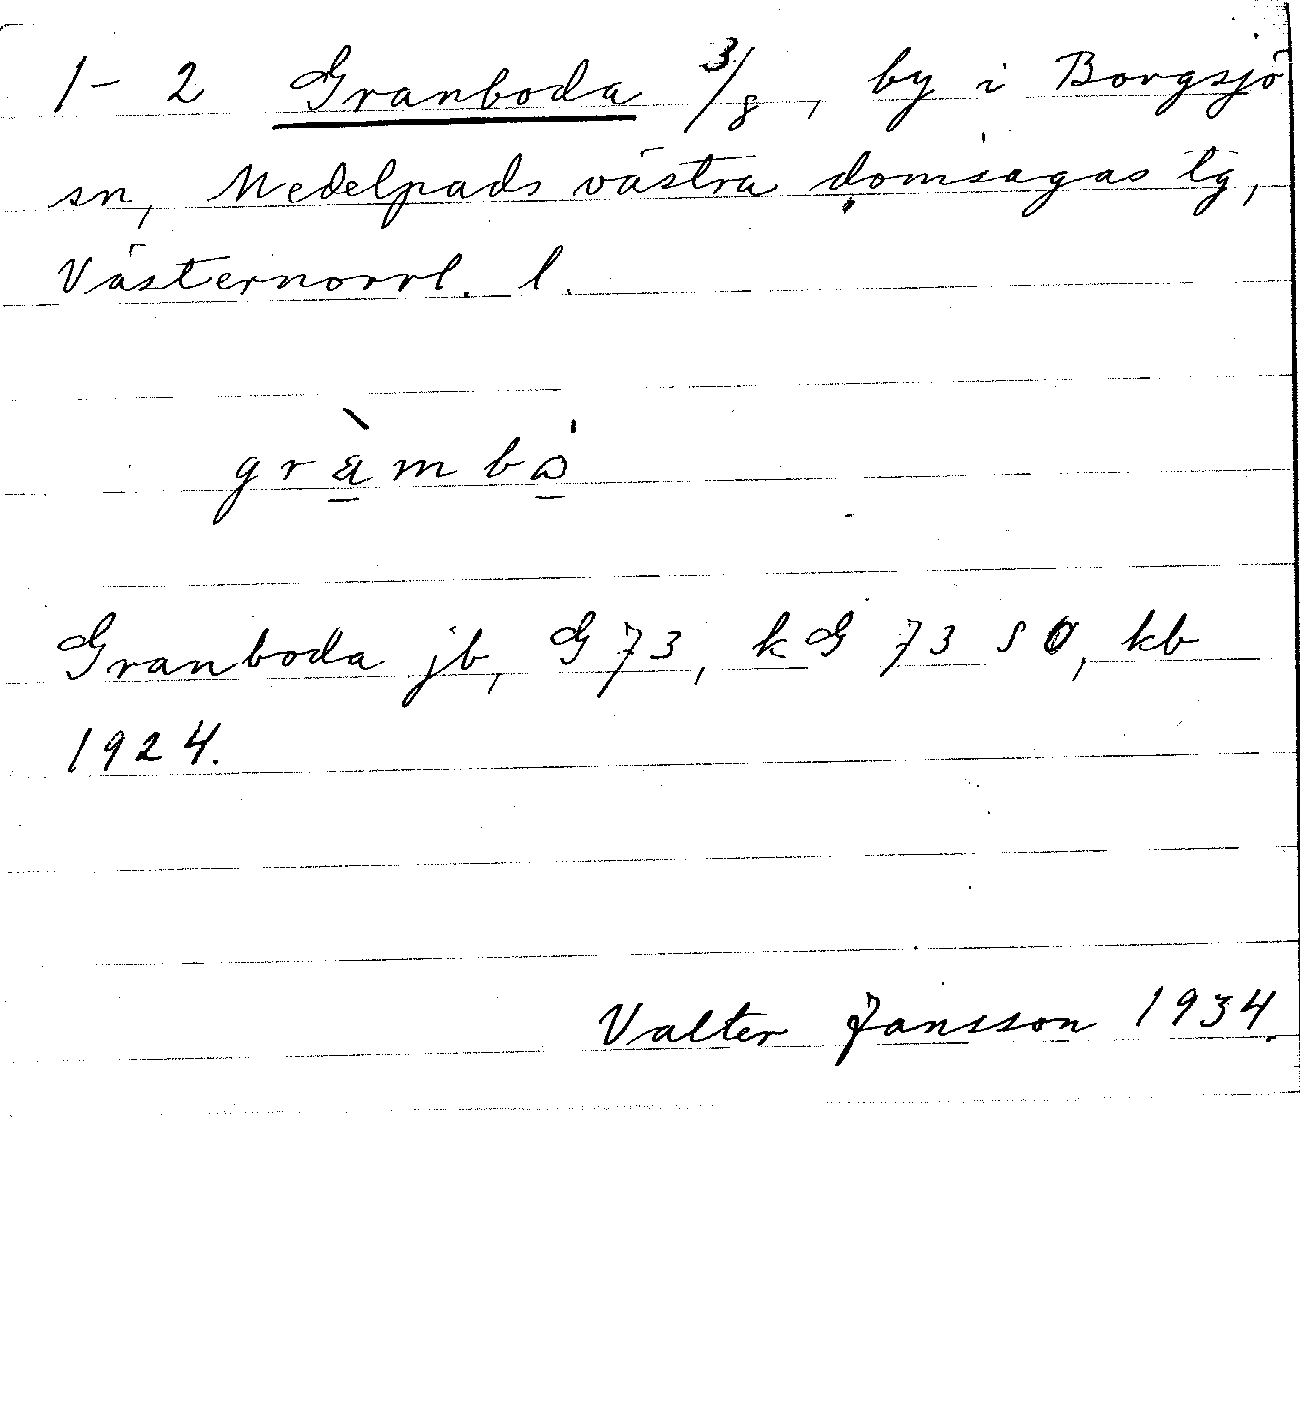 1-2 Granboda 3/8, by i Borgsjö
sn, Medelpads västra domsagas tg,
Västernorrl. l.
gràmbò
Granboda jb, G 73, kG 73 SO, kb
1924.
Valter Jansson 1934.